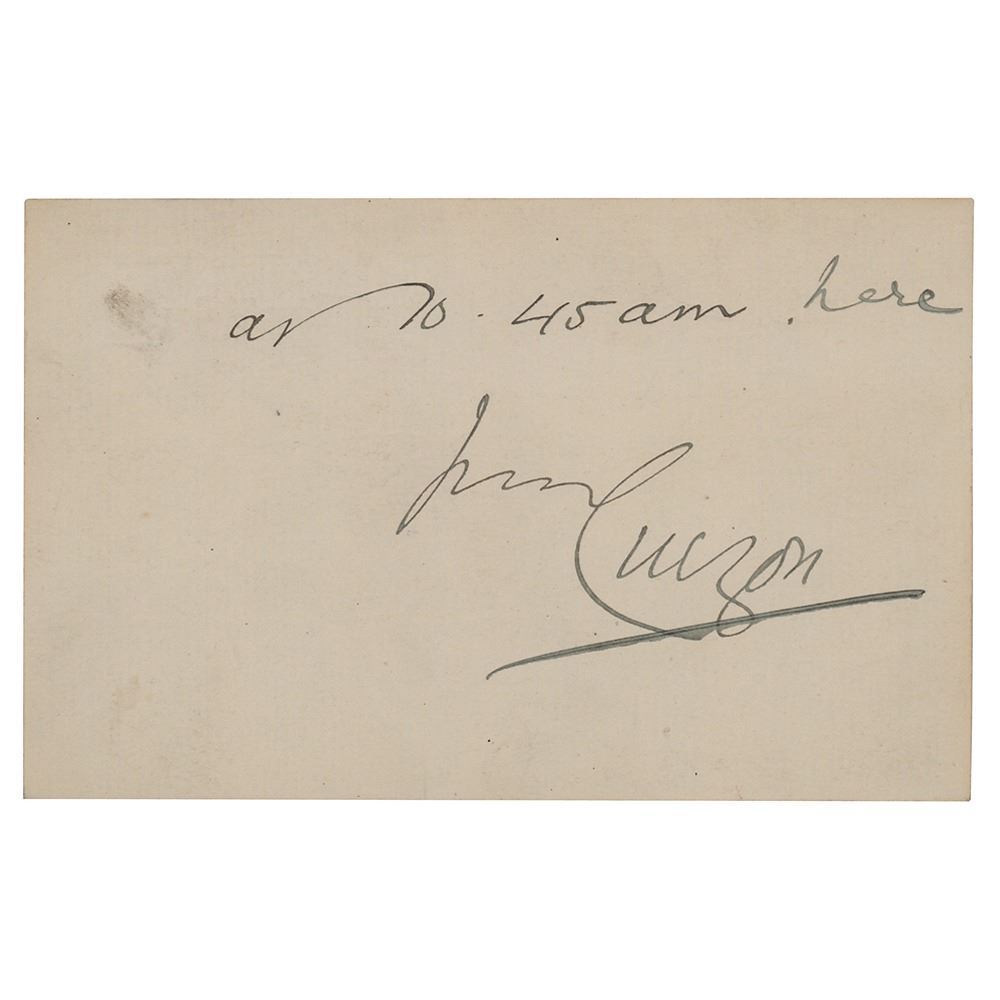 at 10.45 am. here
Curzon